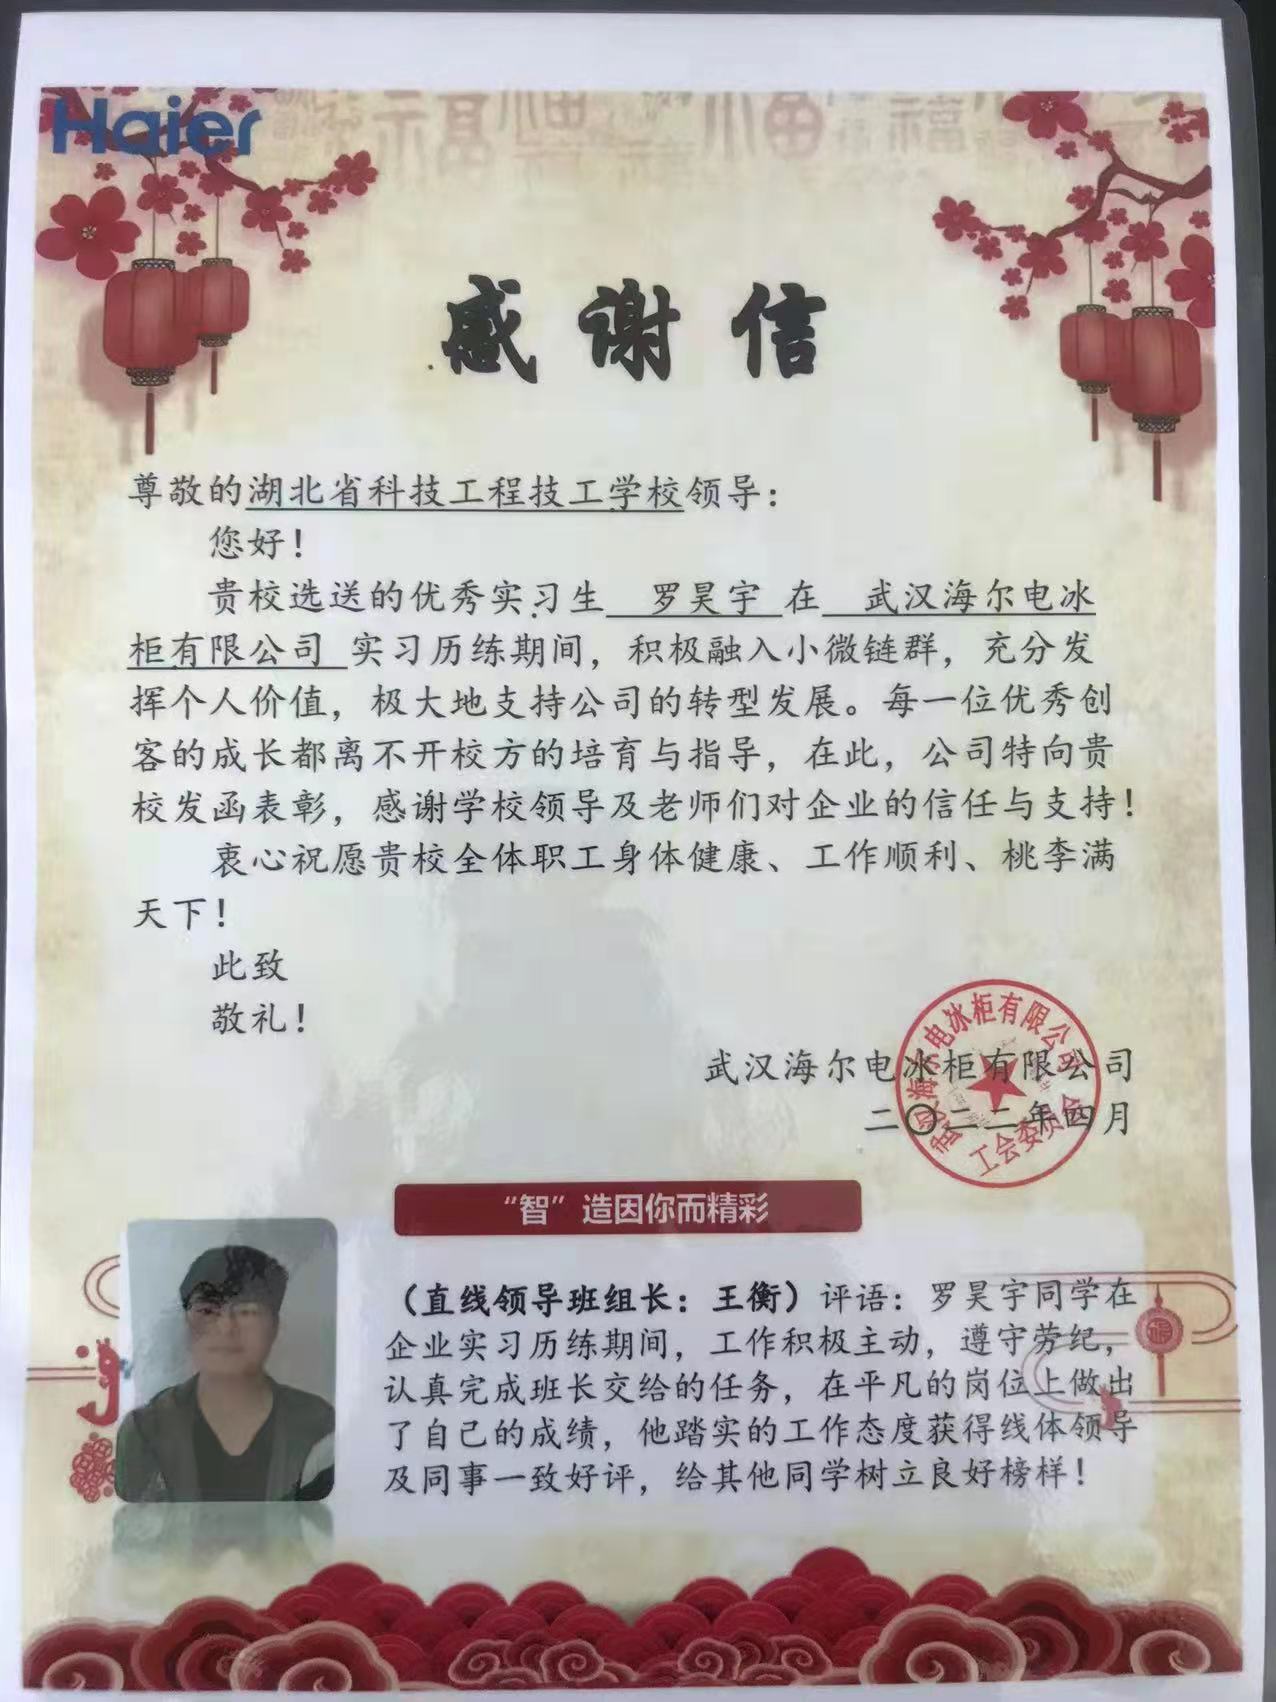 Haier
感谢信
尊敬的湖北省科技工程技工学校领导：
您好！
贵校选送的优秀实习生 罗昊宇 在 武汉海尔电冰
柜有限公司 实习历练期间，积极融入小微链群，充分发
挥个人价值，极大地支持公司的转型发展。每一位优秀创
客的成长都离不开校方的培育与指导，在此，公司特向贵
校发函表彰，感谢学校领导及老师们对企业的信任与支持！
衷心祝愿贵校全体职工身体健康、工作顺利、桃李满
天下！
此致
敬礼！
武汉海尔电冰柜有限公司
二〇二二年四月
武汉海尔电冰柜有限公司
工会委员会
“智”造因你而精彩
（直线领导班组长：王衡）评语：罗昊宇同学在
企业实习历练期间，工作积极主动，遵守劳纪，
认真完成班长交给的任务，在平凡的岗位上做出
了自己的成绩，他踏实的工作态度获得线体领导
及同事一致好评，给其他同学树立良好榜样！